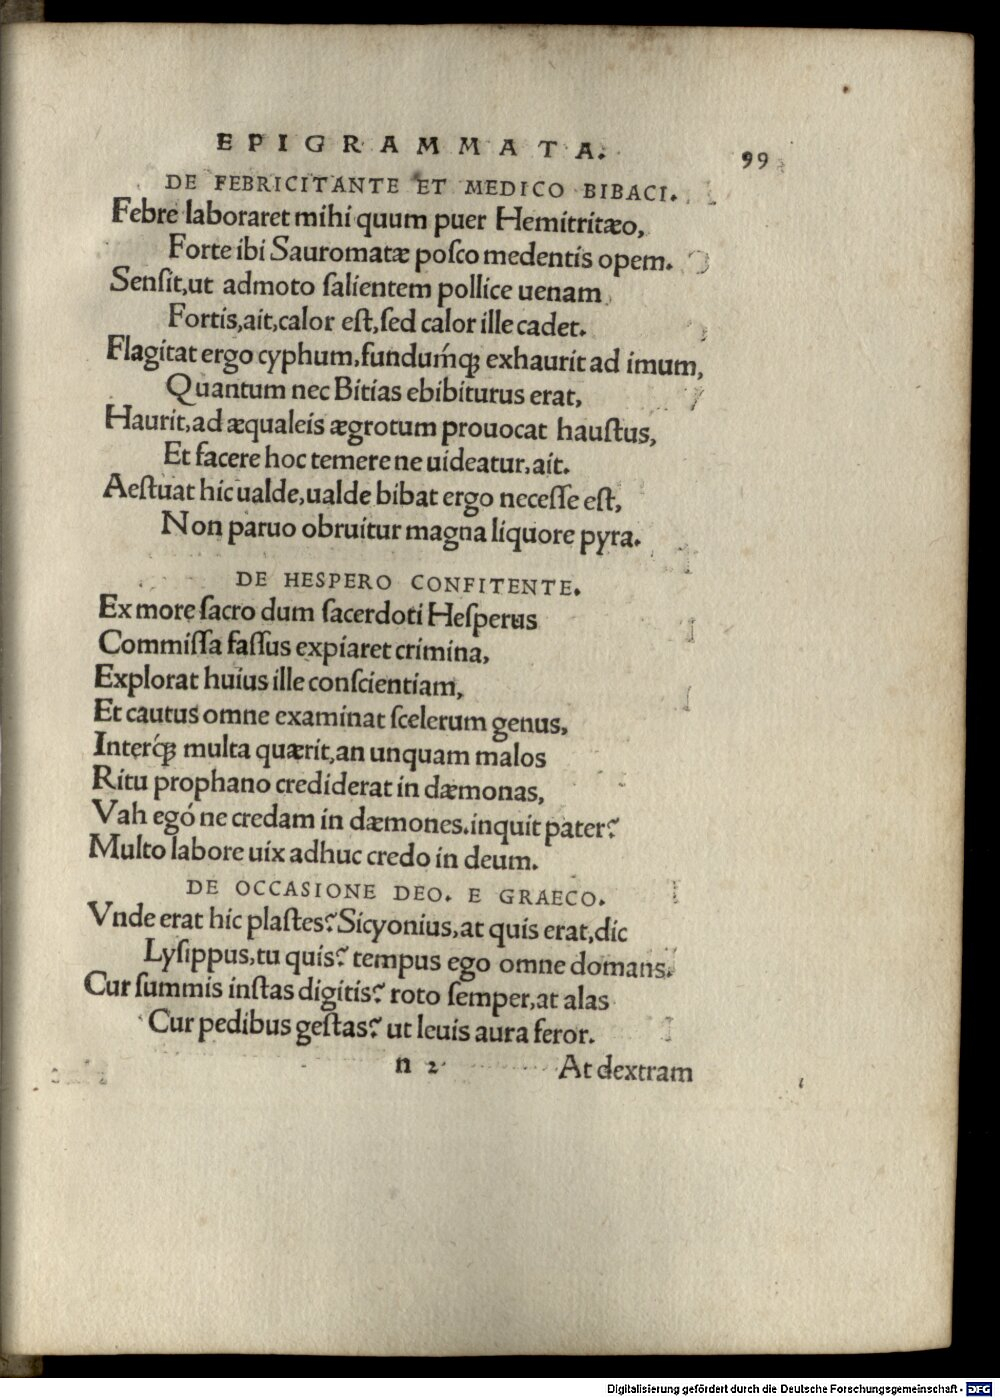 EPIGRAMMATA.
99
DE FEBRICITANTE ET MEDICO BIBACI.
Febre laboraret mihi quum puer Hemitritæo,
Forte ibi Sauromatæ poſco medentis opem.
Senſit,ut admoto ſalientem pollice uenam,
Fortis,ait,calor eſt,ſed calor ille cadet.
Flagitat ergo cyphum,fundumq́; exhaurit ad imum,
Quantum nec Bitias ebibiturus erat,
Haurit,ad æqualeis ægrotum prouocat hauſtus,
Et facere hoc temere ne uideatur,ait.
Aeſtuat hic ualde,ualde bibat ergo neceſſe eſt,
Non paruo obruitur magna liquore pyra.
DE HESPERO CONFITENTE.
Ex more ſacro dum ſacerdoti Heſperus
Commiſſa faſſus expiaret crimina,
Explorat huius ille conſcientiam,
Et cautus omne examinat ſcelerum genus,
Interq́; multa quærit,an unquam malos
Ritu prophano crediderat in dæmonas,
Vah egó ne credam in dæmones.inquit pater?
Multo labore uix adhuc credo in deum.
DE OCCASIONE DEO. E GRAECO.
Vnde erat hic plaſtes? Sicyonius,at quis erat,dic
Lyſippus,tu quis? tempus ego omne domans.
Cur ſummis inſtas digitis? roto ſemper,at alas
Cur pedibus geſtas? ut leuis aura feror.
n 2 At dextram
Digitalisierung gefördert durch die Deutsche Forschungsgemeinschaft - DFG